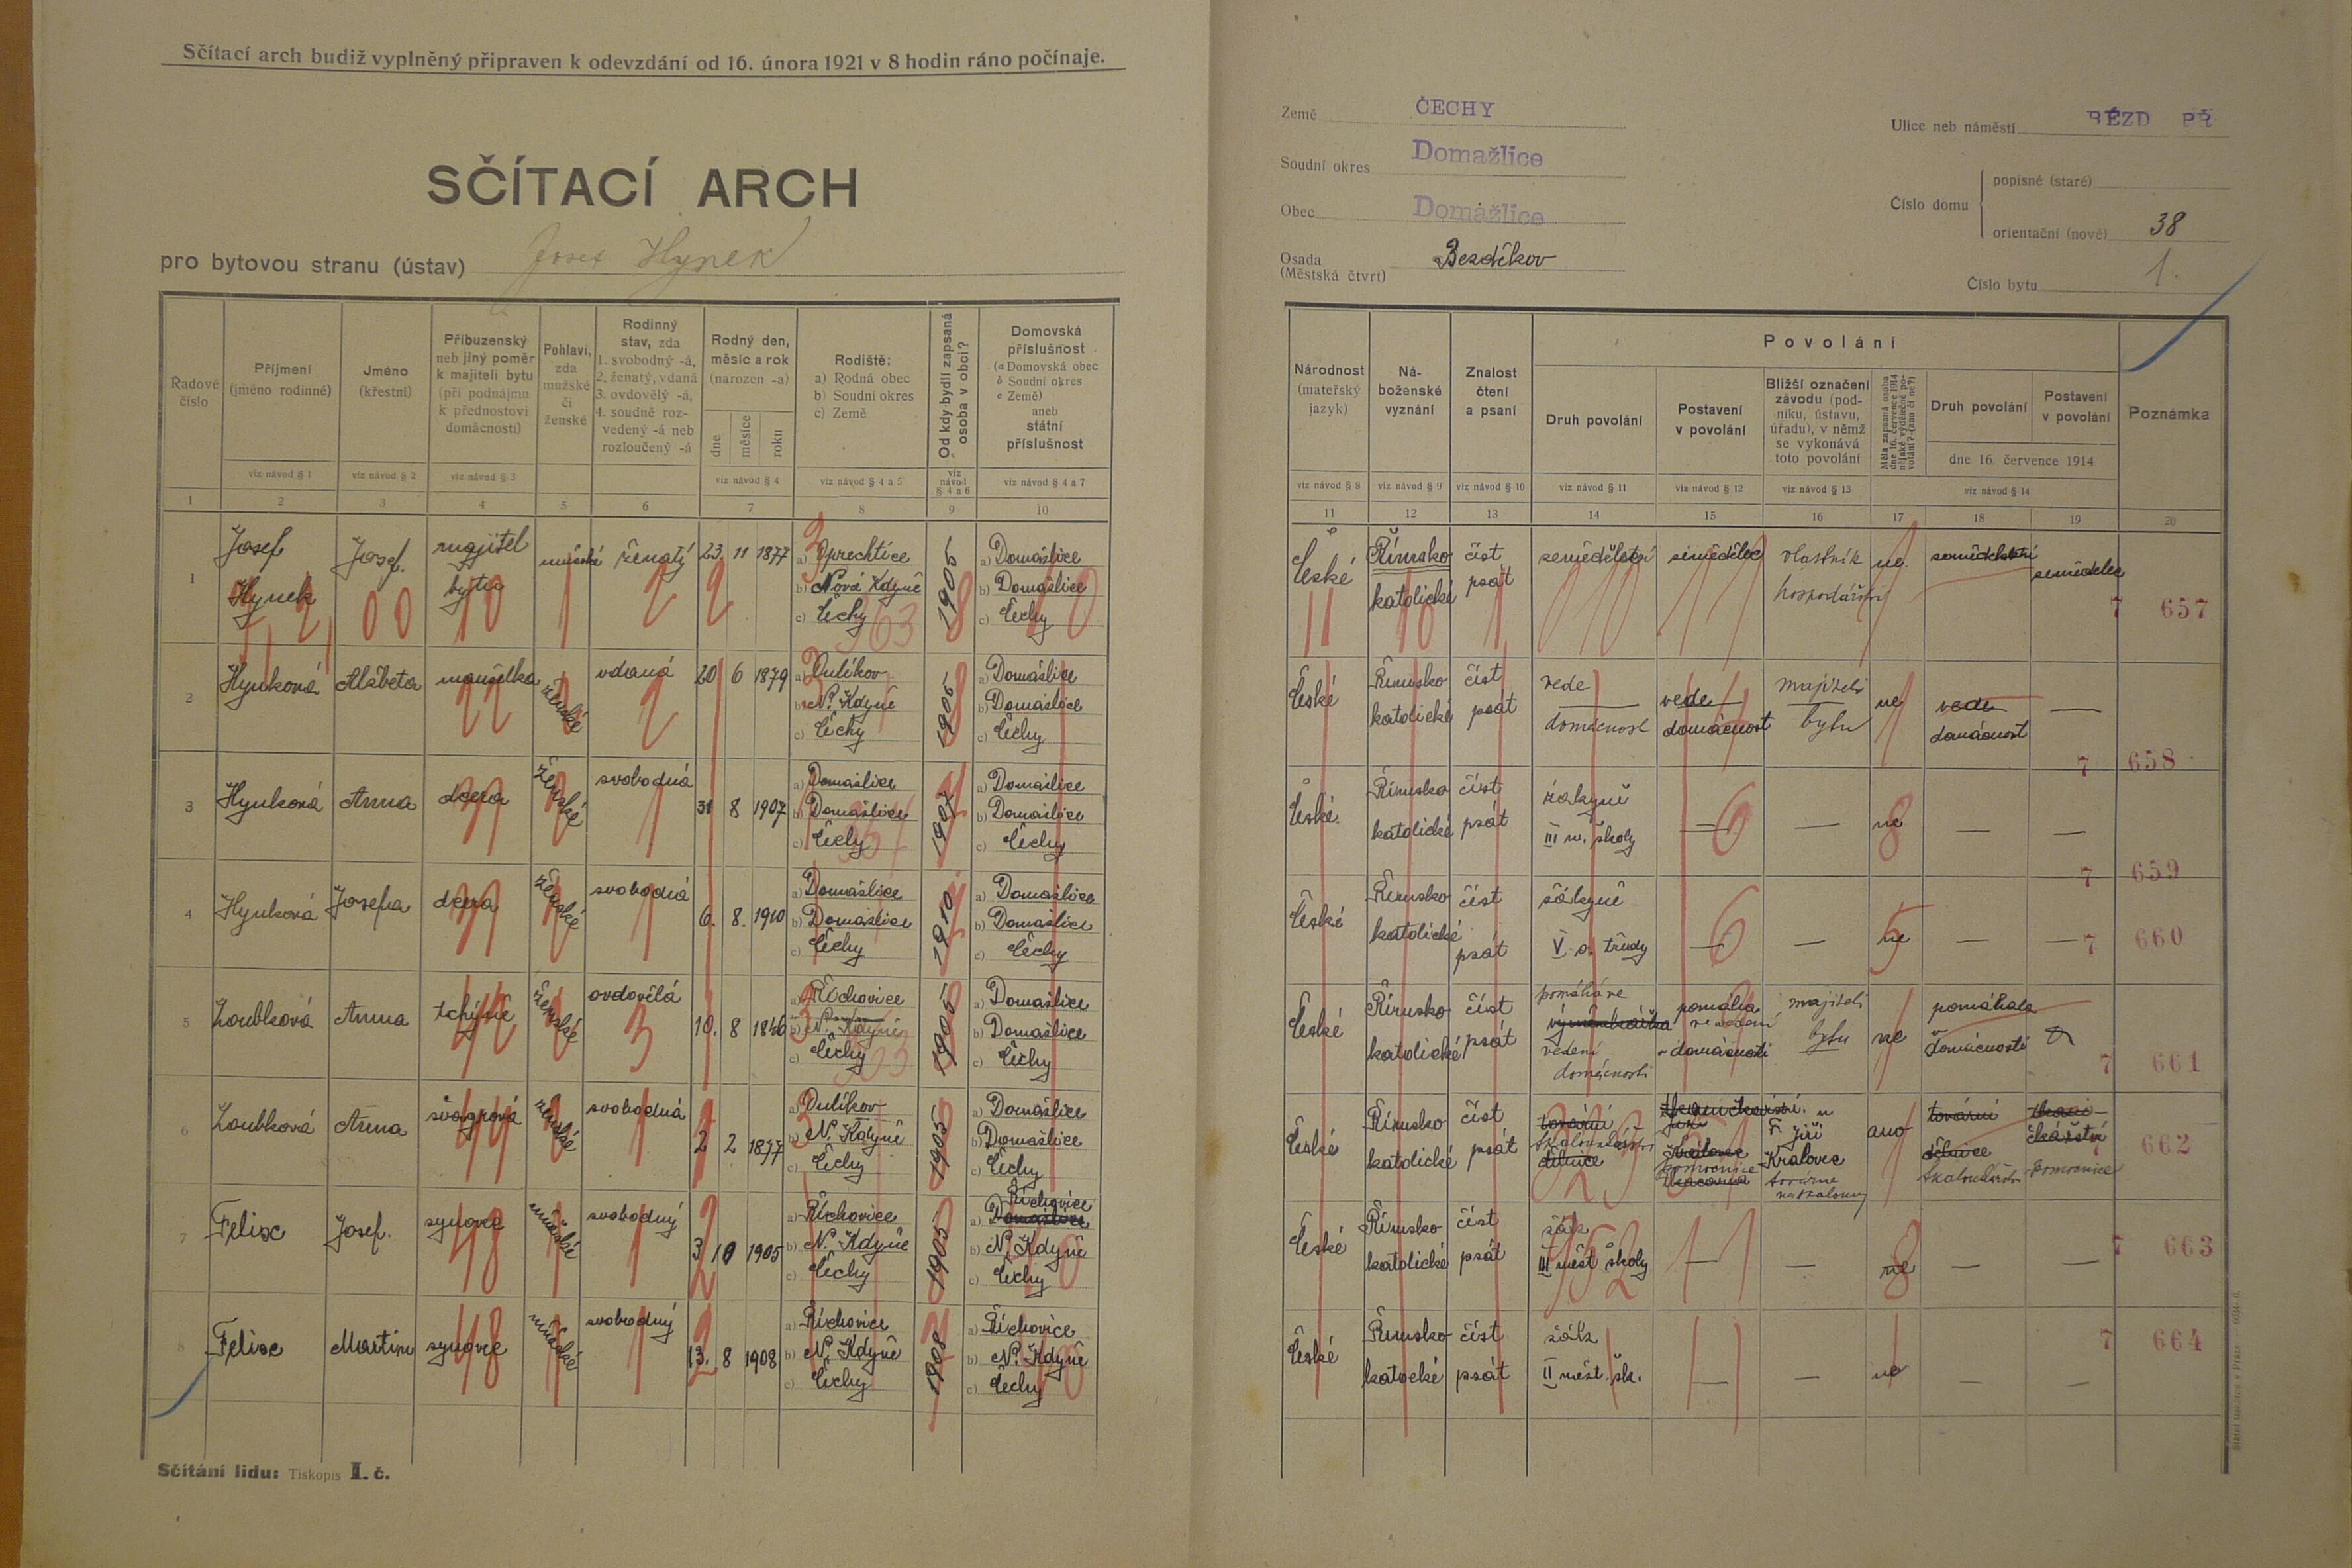 Sčítací arch budiž vyplněný připraven k odevzdání od 16. února 1921 v 8 hodin ráno počínaje.
SČÍTACÍ ARCH
pro bytovou stranu (ústav) Josef Hynek
Země ČECHY
Soudní okres Domažlice
Obec Domažlice
Osada Bezděkov
(Městská čtvrt)
Ulice neb náměstí BÉZD PŘ
Číslo domu
popisné (staré)
orientační (nové) 38
Číslo bytu 1.
Řadové číslo
Příjmení (jméno rodinné)
Jméno (křestní)
Příbuzenský neb jiný poměr k majiteli bytu (při podnájmu k přednostovi domácnosti)
Pohlaví, zda mužské či ženské
Rodinný stav, zda 1. svobodný -á, 2. ženatý, vdaná 3. ovdovělý -á, 4. soudně rozvedený -á neb rozloučený -á
Rodný den, měsíc a rok (narozen -a)
dne měsíce roku
Rodiště: a) Rodná obec b) Soudní okres c) Země
Od kdy bydlí zapsaná osoba v obci?
Domovská příslušnost (a Domovská obec b Soudní okres c Země) aneb státní příslušnost
Národnost (mateřský jazyk)
Náboženské vyznání
Znalost čtení a psaní
Povolání
Druh povolání
Postavení v povolání
Bližší označení závodu (podniku, ústavu, úřadu), v němž se vykonává toto povolání
Měla zapsaná osoba dne 16. července 1914 nějaké výdělečné povolání? (ano či ne?)
Druh povolání
Postavení v povolání
dne 16. července 1914
Poznámka
viz návod § 1 viz návod § 2 viz návod § 3 viz návod § 4 viz návod § 4 a 5 viz návod § 4 a 6 viz návod § 4 a 7
viz návod § 8 viz návod § 9 viz návod § 10 viz návod § 11 viz návod § 12 viz návod § 13 viz návod § 14
1 2 3 4 5 6 7 8 9 10
11 12 13 14 15 16 17 18 19 20
1 Josef Hynek Josef. majitel bytu mužské ženatý 23. 11 1877 a) Oprechtice b) Nová Kdyně c) Čechy 1905 a) Domažlice b) Domažlice c) Čechy
České Římsko katolické číst psát zemědělství zemědělec vlastník hospodářství ne. zemědělství zemědělec 7 657
2 Hynková Alžběta manželka ženské vdaná 20 6 1879 a) Dulíkov b) N. Kdyně c) Čechy 1905 a) Domažlice b) Domažlice c) Čechy
České Římsko katolické číst psát vede domácnost vede domácnost majiteli bytu ne vede domácnost — 7 658
3 Hynková Anna dcera ženské svobodná 31 8 1907 a) Domažlice b) Domažlice c) Čechy 1907 a) Domažlice b) Domažlice c) Čechy
České Římsko katolické číst psát žákyně III m. školy — — ne — — 7 659
4 Hynková Josefa dcera ženské svobodná 6. 8. 1910 a) Domažlice b) Domažlice c) Čechy 1910 a) Domažlice b) Domažlice c) Čechy
České Římsko katolické číst psát žákyně V. o. třídy — — ne — — 7 660
5 Zoubková Anna tchýně ženské ovdovělá 10. 8 1846 a) Říchovice b) N. Kdyně c) Čechy 1905 a) Domažlice b) Domažlice c) Čechy
České Římsko katolické číst psát pomáhá ve vedení domácnosti pomáhá ve vedení domácnosti majiteli bytu ne pomáhala domácnosti 7 661
6 Zoubková Anna švagrová ženské svobodná 2 2 1877 a) Dulíkov b) N. Kdyně c) Čechy 1905 a) Domažlice b) Domažlice c) Čechy
České Římsko katolické číst psát tovární dělnice pomocnice F. Jiří Královec továrna ano tovární dělnice pomocnice 7 662
7 Felix Josef. synovec mužské svobodný 3 10 1905 a) Říchovice b) N. Kdyně c) Čechy 1905 a) Říchovice Domažlice b) N. Kdyně c) Čechy
České Římsko katolické číst psát žák III měšt školy — — ne — — 7 663
8 Felix Martin synovec mužské svobodný 13. 8 1908 a) Říchovice b) N. Kdyně c) Čechy 1908 a) Říchovice b) N. Kdyně c) Čechy
České Římsko katolické číst psát žák II měšt. šk. — — ne — — 7 664
Sčítání lidu: Tiskopis I. č.